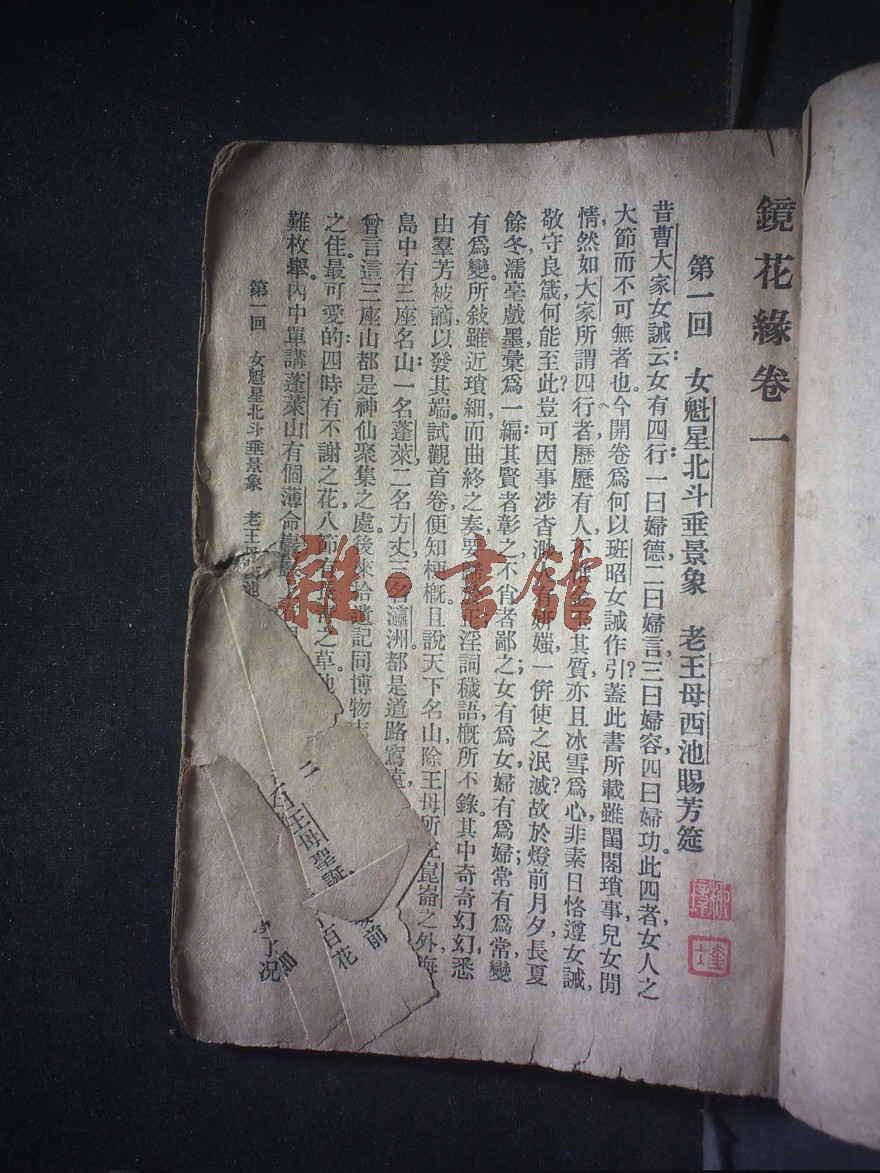 鏡花緣卷一
第一回 女魁星北斗垂景象 老王母西池賜芳筵
昔曹大家女誡云女有四行一曰婦德二曰婦言三曰婦容四曰婦功此四者女人之
大節而不可無者也今開卷爲何以班昭女誡作引蓋此書所載雖閨閣瑣事兒女閒
情然如大家所謂四行者歷歷有人不惟金玉其質亦且冰雪爲心非素日恪遵女誡
敬守良箴何能至此豈可因事涉杳渺妍媸一倂使之泯滅故於燈前月夕長夏
餘冬濡毫戲墨彙爲一編其賢者彰之不肖者鄙之女有爲女婦有爲婦常有爲常變
有爲變所敍雖近瑣細而曲終之奏要淫詞穢語概所不錄其中奇奇幻幻悉
由羣芳被謫以發其端試觀首卷便知梗概且說天下名山除王母所崑崙之外海
島中有三座名山一名蓬萊二名方丈三名瀛洲都是道路窵遠
曾言這三座山都是神仙聚集之處後來拾遺記同博物
之佳最可愛的四時有不謝之花八節之草
難枚舉內中單講蓬萊山有個薄命
第一回 女魁星北斗垂景象 老王母池
二
王母聖誕
前
百花
了况
雜·書館